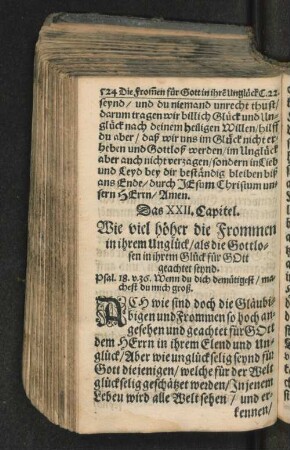 524 Die From̃en für Gott in ihrē Unglück C. 22.
seynd / und du niemand unrecht thust /
darum tragen wir billich Glück und Un-
glück nach deinem heiligen Willen / hilff
du aber / daß wir uns im Glück nicht er-
heben und Gottloß werden / im Unglück
aber auch nicht verzagen / sondern in Lieb
und Leyd bey dir beständig bleiben biß
ans Ende / durch JEsum Christum un-
sern HErrn / Amen.
Das XXII. Capitel.
Wie viel höher die Frommen
in ihrem Unglück / als die Gottlo-
sen in ihrem Glück für GOtt
geachtet seynd.
Psal. 18. v. 36. Wenn du dich demütigest / ma-
chest du mich groß.
ACH wie sind doch die Gläubi-
bigen und Frommen so hoch an-
gesehen und geachtet für GOtt
dem HErrn in ihrem Elend und Un-
glück / Aber wie unglückselig seynd für
Gott diejenigen / welche für der Welt
glückselig geschätzet werden / In jenem
Leben wird alle Welt sehen / und er-
kennen /